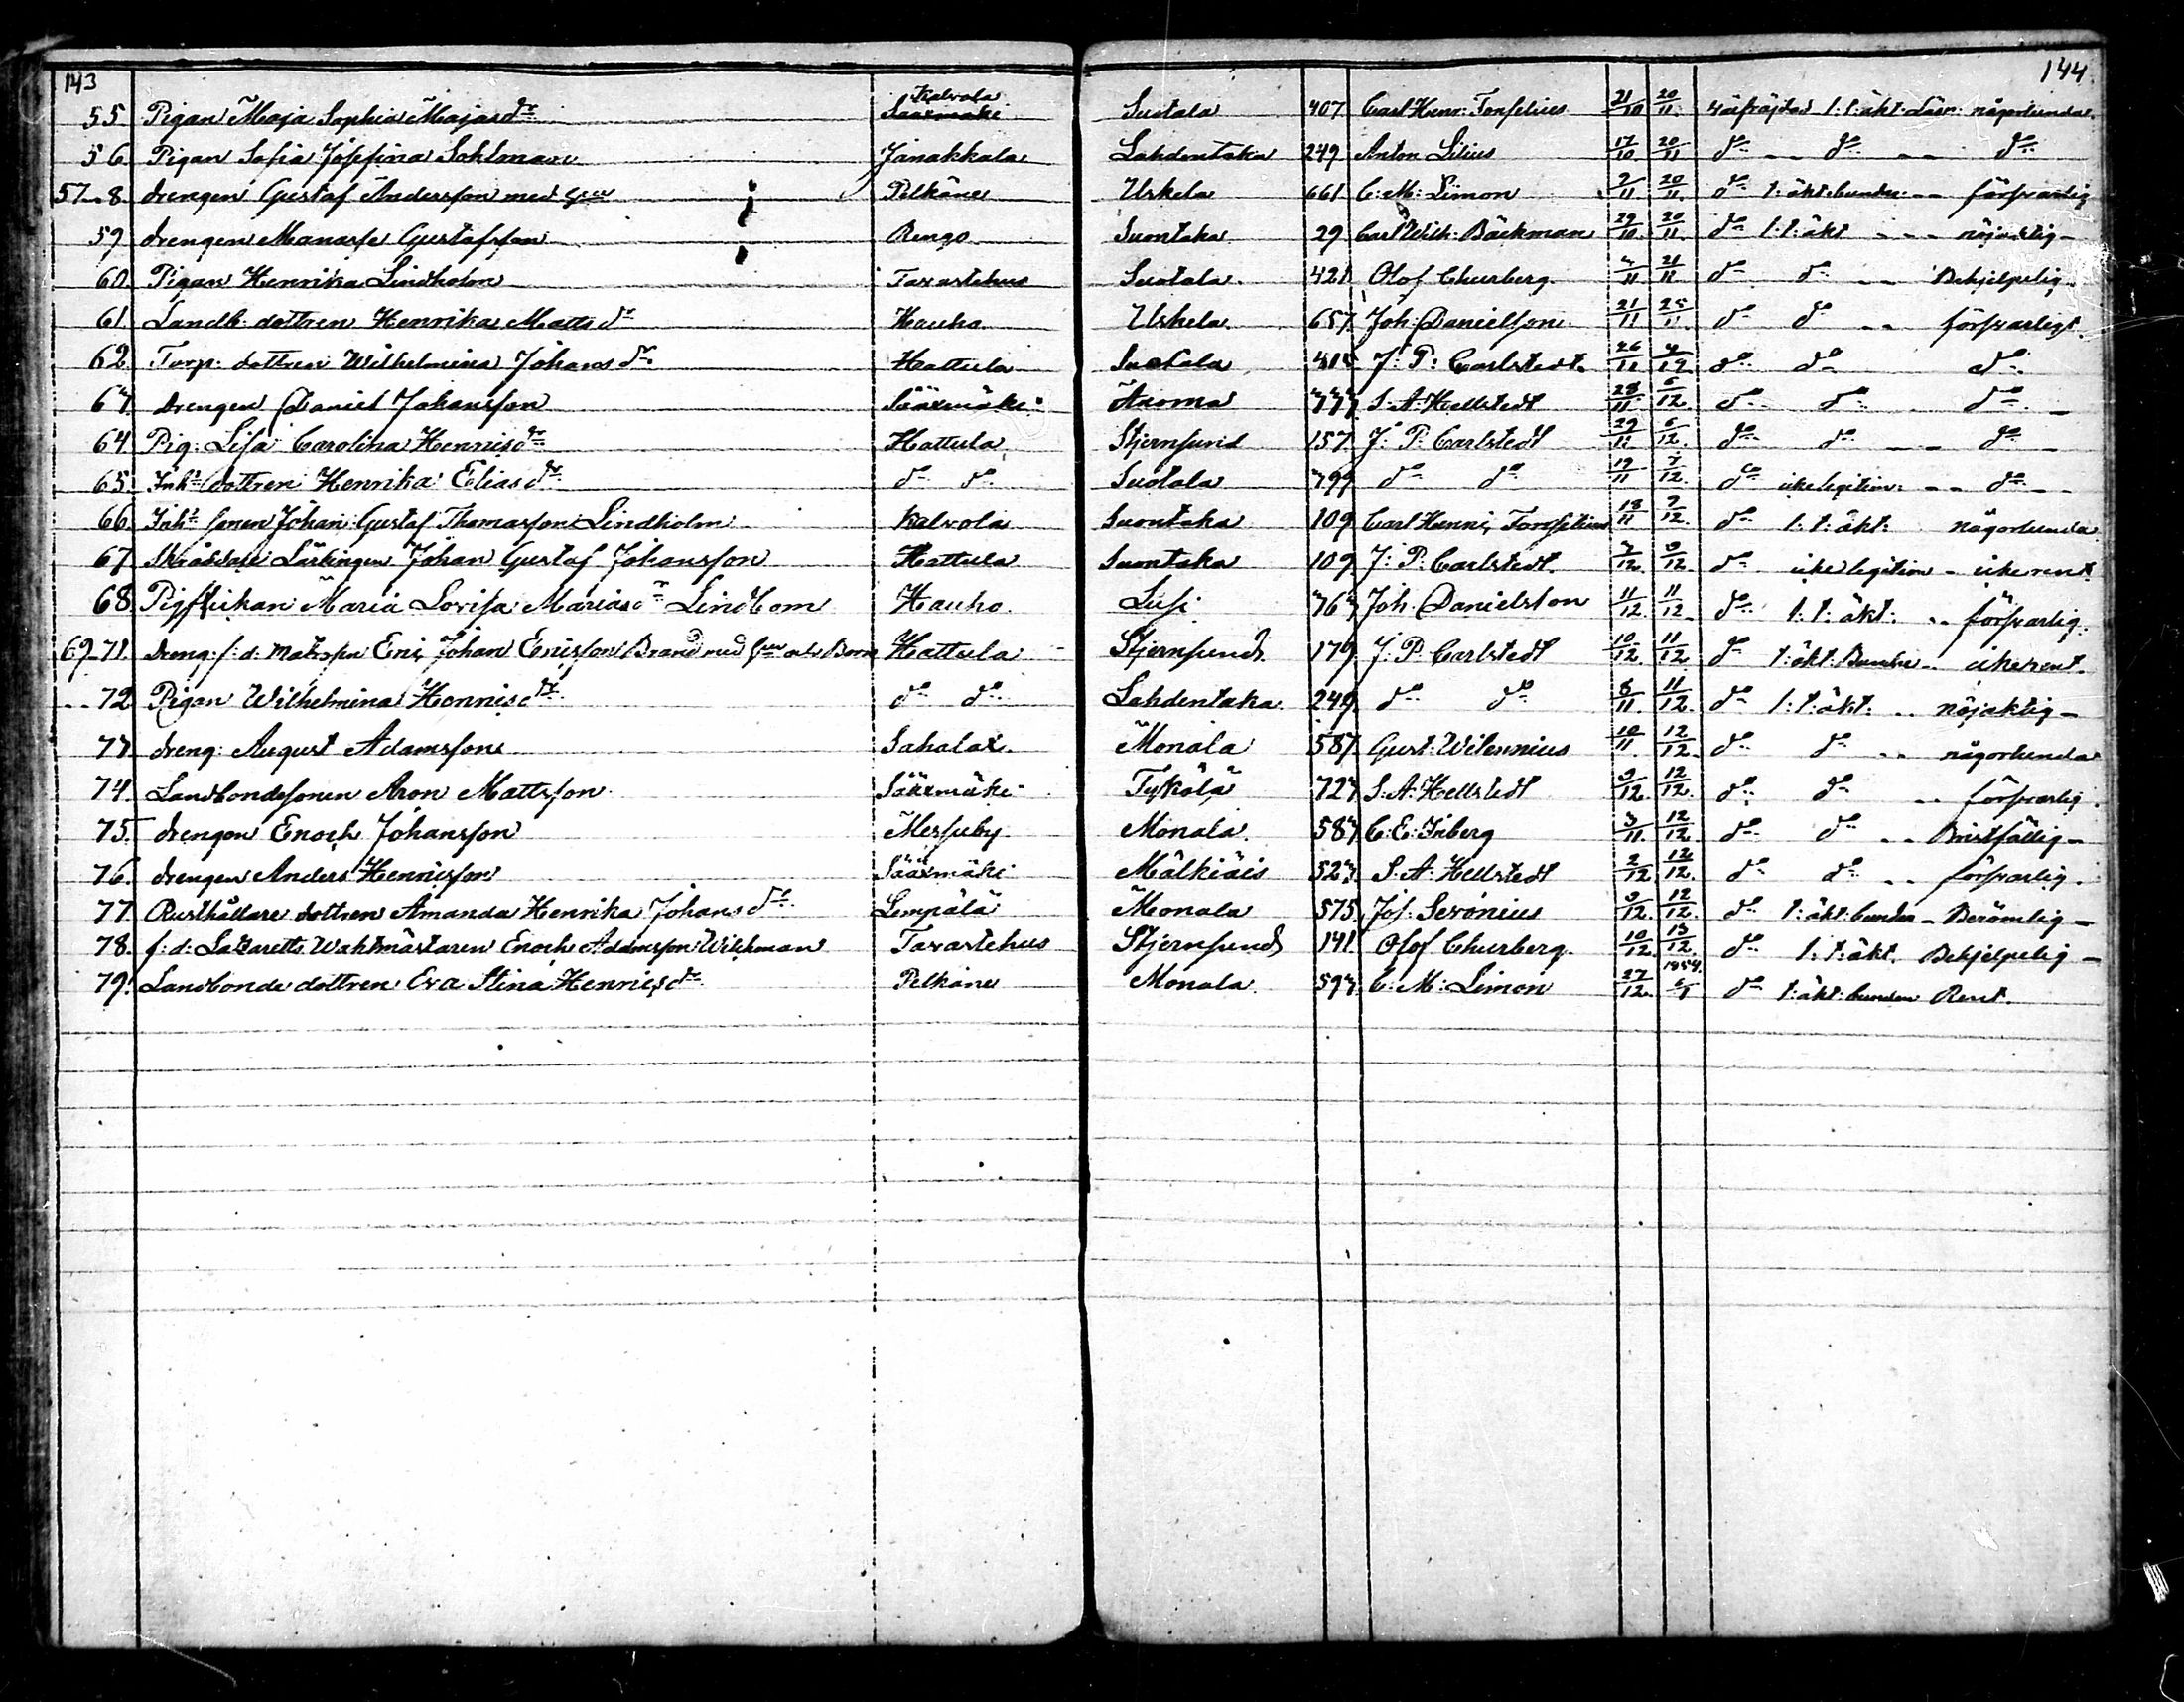 143 144.
55. Pigan Maja Sophia Majasdr Kalvola Sääxmäki Suotala 407 Carl Henr: Forselius 21/10 20/11 l: t: äkt. Läsn: någorlunda
56. Pigan Sofia Josefina Sohlman Janakkala Lahdentaka 249 Anton Lilius 17/10 20/11 do do do
57-8. drengen Gustaf Andersson med Pelkäne Uskela 661 C: M: Limon 9/11 20/11 do t: äkt: bunden försvarlig
59 drengen Manasse Gustafsson Rengo Suontaka 29 Carl Wilh: Bäckman 29/10 20/11 do l: t: äkt nöjaktig
60. Pigan Henrika Lindholm Tavastehus Suotala 421 Olof Churberg 4/11 21/11 do do Behjelpelig
61. Landb. dottren Henrika Mattsdr Hauho Uskela 657 Joh: Danielson 21/11 25/11 do do försvarligt
62. Torp: dottren Wilhelmina Johansdr Hattula Suotala J: P: Carlstedt 26/11 4/12 do do do
63. Drengen Daniel Johansson Sääxmäki Äuoma 777 S: A: Hellstedt 28/11 5/12 do do do
64. Pig: Lisa Carolina Henricsdr Hattula Stjernsund 157 J: P: Carlstedt 29/11 5/12 do do do
65. Inhs dottren Henrika Eliasdr do do Suotala 799 do do 19/11 7/12 do icke legitim: do
66. Inhs sonen Johan Gustaf Thomasson Lindholm Kalvola Suontaka 109 Carl Henric Forsselius 18/11 9/12 do l: t: äkt: någorlunda
67 Skräddare Lärlingen Johan Gustaf Johansson Hattula Suontaka 109 J: P: Carlstedt 7/12 9/12 do icke legitim icke rent
68. Pigflickan Maria Lovisa Mariasdr Lindbom Hauho Lusi 767 Joh: Danielson 11/12 11/12 do l: t: äkt: försvarlig
69-71. Dreng: f: d: Matrosen Eric Johan Ericsson Brand med och Barn Hattula Stjernsund 179 J: P: Carlstedt 10/12 11/12 do t: äkt: Bunden icke rent.
72 Pigan Wilhelmina Henricsdr do do Lahdentaka 249 do do 5/11 11/12 do l: t: äkt: nöjaktig
73. dreng: August Adamsson Sahalax Monala 587 Gust: Wilennius 10/11 12/12 do do någorlunda
74. Landbondesonen Aron Mattsson Sääxmäki Tykölä 727 S: A: Hellstedt 9/12 12/12 do do försvarlig
75. drengen Enoch Johansson Messuby Monala 587 C: E: Inberg 3/11 12/12 do do Bristfällig
76. drengen Anders Henricsson Sääxmäki Mälkiäis 527 S: A: Hellstedt 2/12 12/12 do do försvarlig
77. Rusthållare dottren Amanda Henrika Johansdr Lempälä Monala 575 Jos: Serónius 9/12 12/12 do t: äkt: bunden Berömlig
78. f: d: Lazaretts Wahtmästaren Enoch Adamsson Wichman Tavastehus Stjernsund 141 Olof Churberg 10/12 13/12 do l: t: äkt. Behjelpelig
79. Landbonde dottren Eva Stina Henricsdr Pelkäne Monala 597 C: M: Limon 27/12 1854. do t: äkt: bunden Rent.